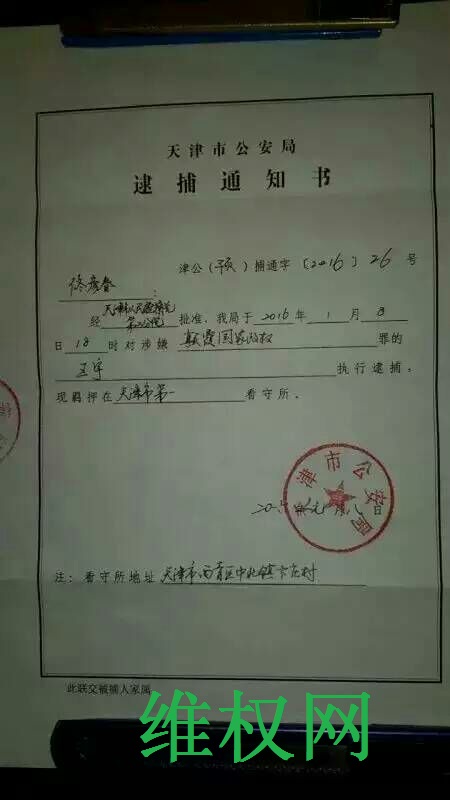 天津市公安局
逮捕通知书
津公(预)捕通字〔2016〕26号
佟彦春:
经天津市人民检察院第二分院批准,我局于2016年1月8
日18时对涉嫌颠覆国家政权罪的
王宇执行逮捕,
现羁押在天津市第一看守所。
津市公安局
注:看守所地址天津市西青区中北镇卞庄村
此联交被捕人家属
维权网